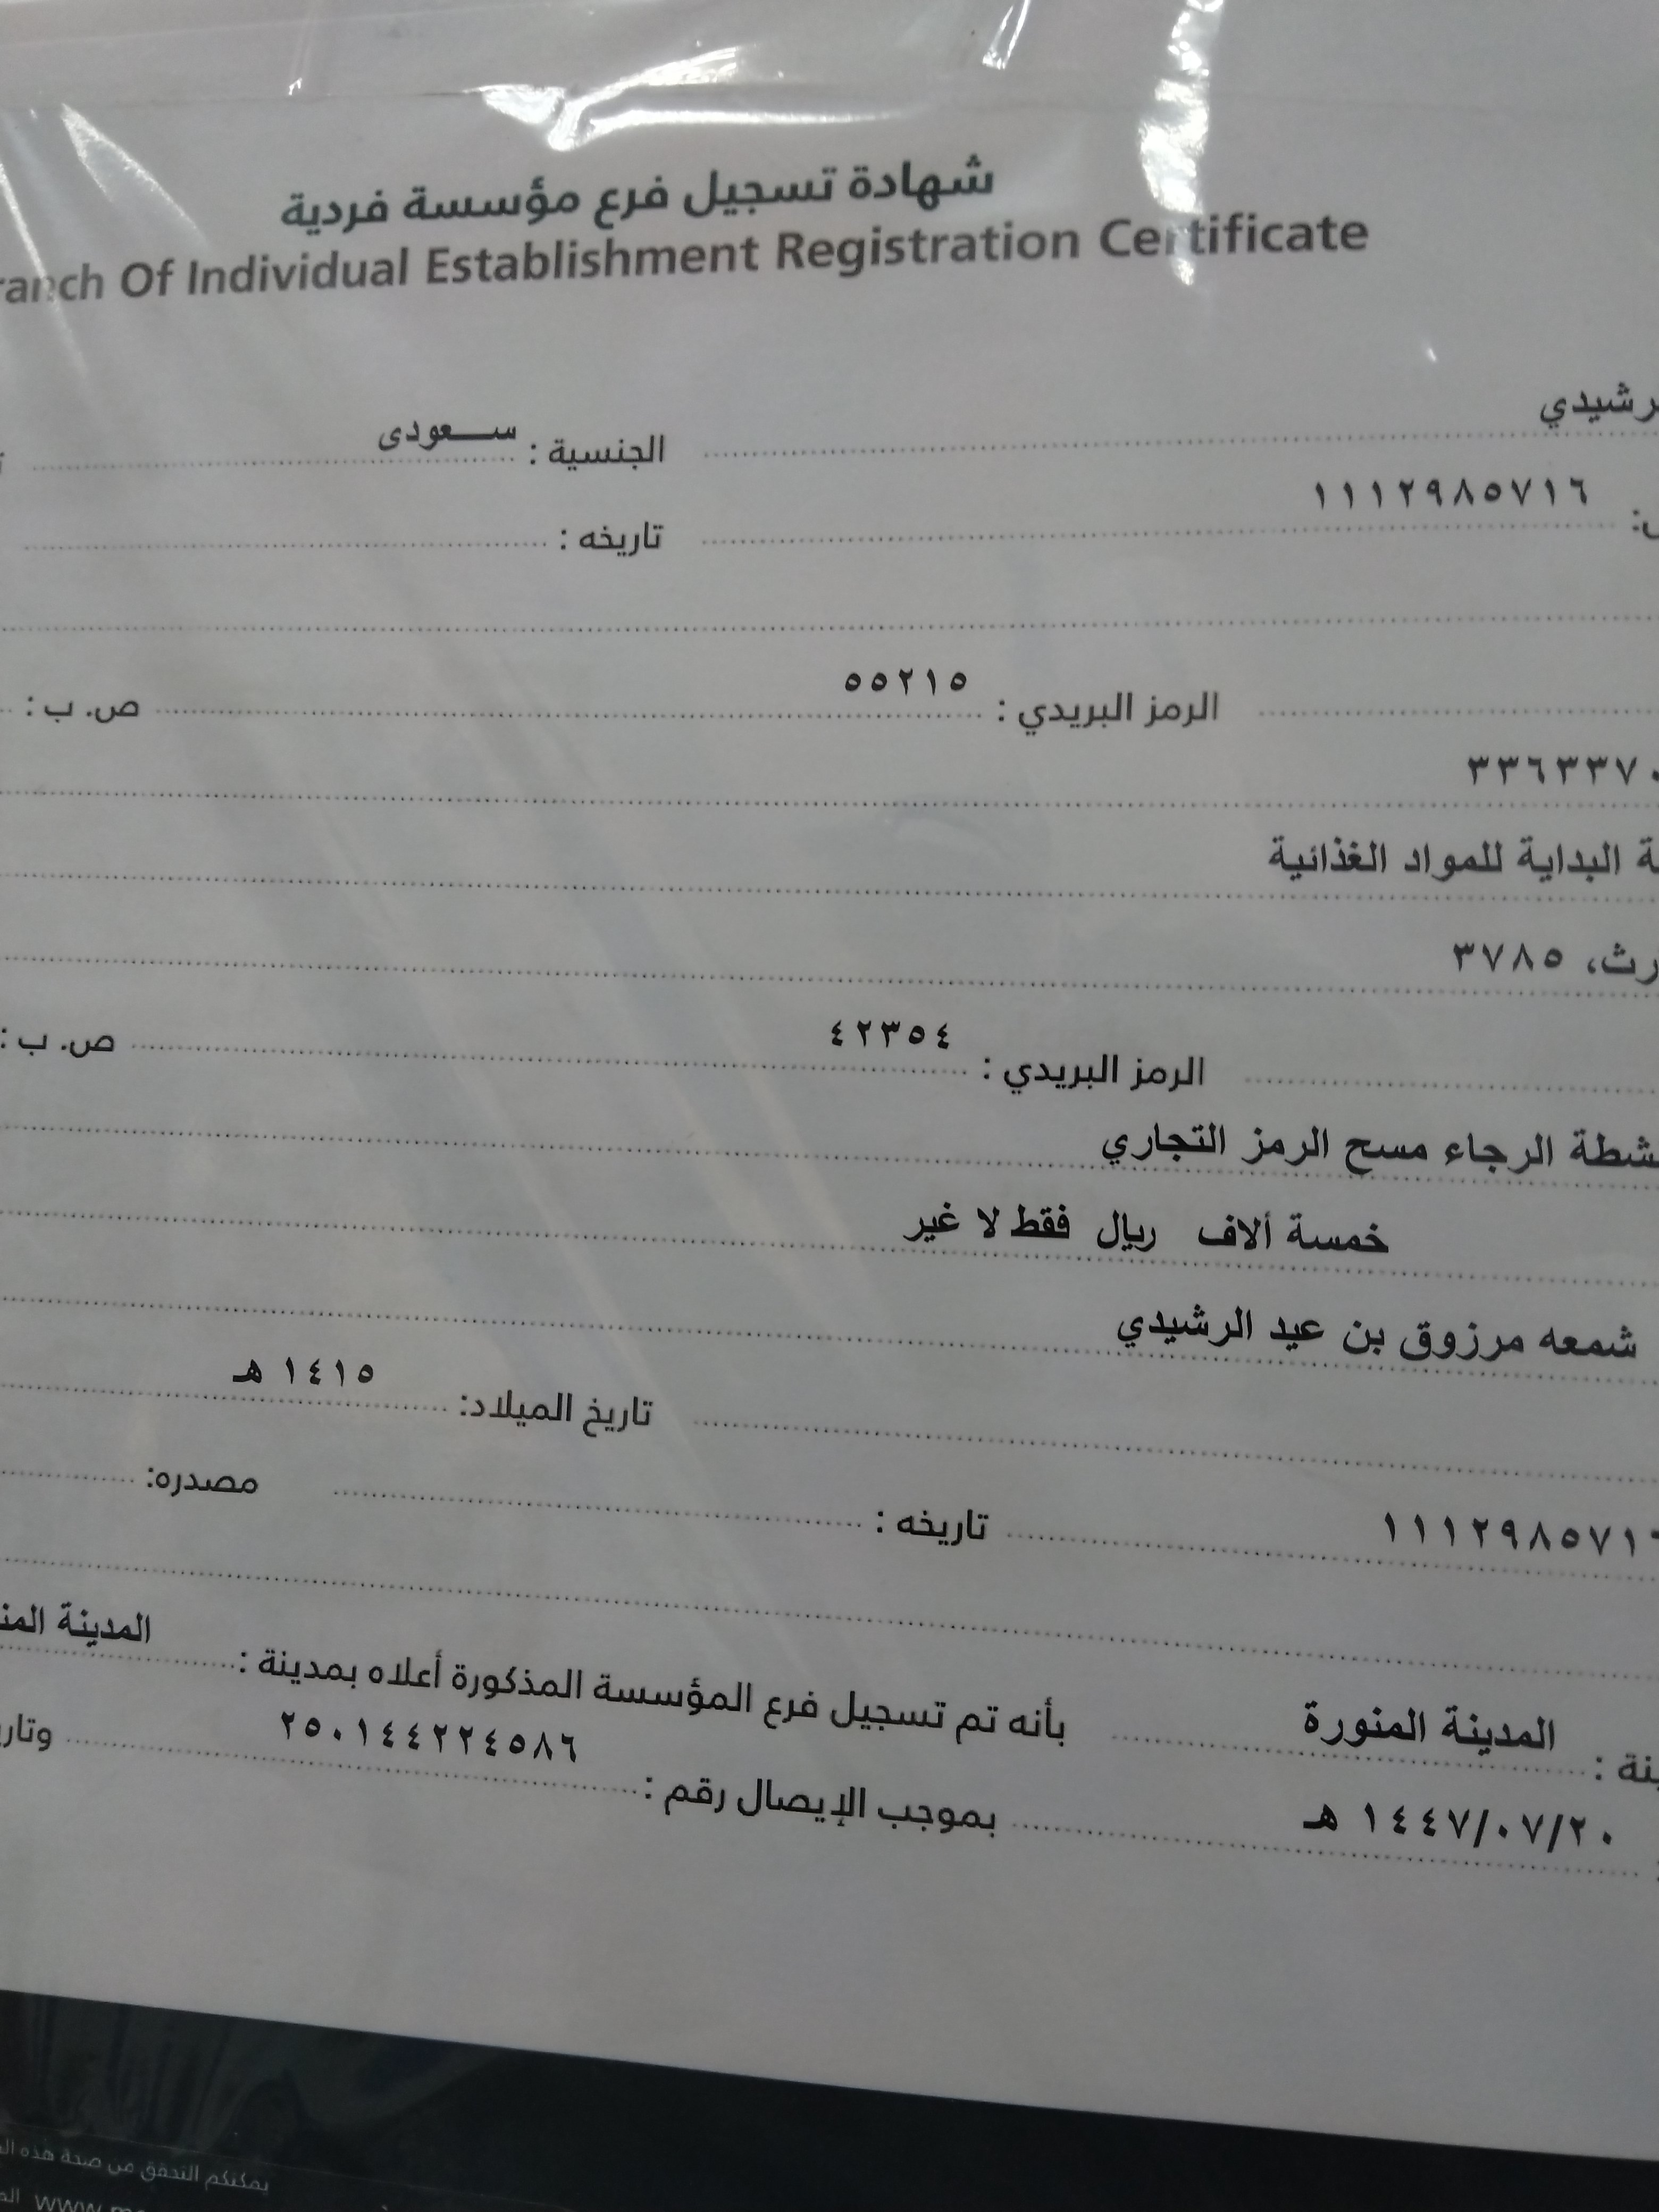 شهادة تسجيل فرع مؤسسة فردية
Of Individual Establishment Registration Certificate
الجنسية : سعودى
١١١٢٩٨٥٧١٦ تاريخه :
الرمز البريدي : ٥٥٢١٥ ص. ب :
٣٣٦٣٣٧٠
البداية للمواد الغذائية
٣٧٨٥
الرمز البريدي : ٤٢٣٥٤ ص. ب :
الرجاء مسح الرمز التجاري
خمسة ألاف ريال فقط لا غير
شمعه مرزوق بن عيد الرشيدي
تاريخ الميلاد: ١٤١٥ هـ
١١١٢٩٨٥٧١٦ تاريخه : مصدره:
المدينة المنورة بأنه تم تسجيل فرع المؤسسة المذكورة أعلاه بمدينة : المدينة
١٤٤٧/٠٧/٢٠ هـ بموجب الإيصال رقم : ٢٥٠١٤٤٢٢٤٥٨٦
يمكنكم التحقق من صحة هذه